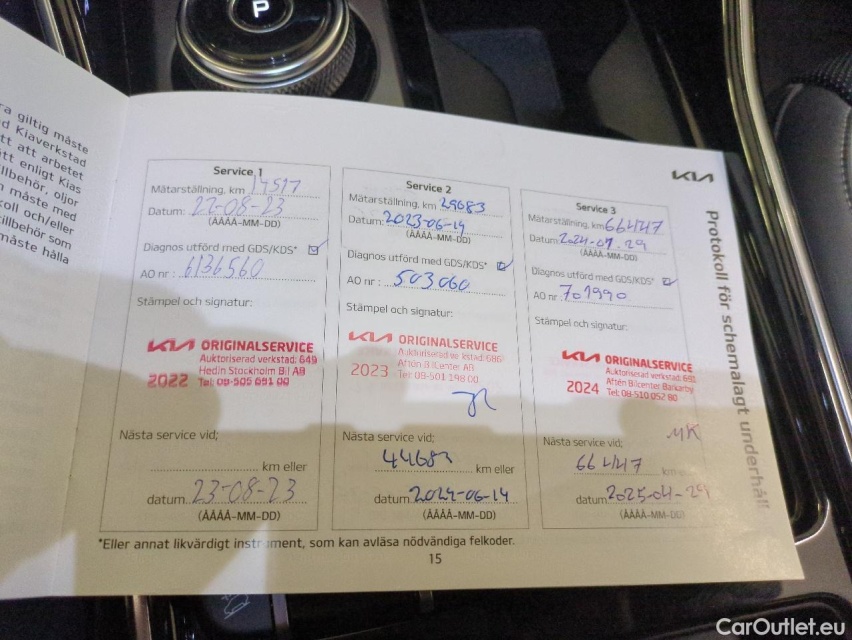 P
ra giltig måste
d Kiaverkstad
tt att arbetet
ått enligt Kias
llbehör, oljor
n måste med
coll och/eller
tillbehör som
måste hålla
KIA
Protokoll för schemalagt underhåll
Service 1
Mätarställning, km 14517
Datum: 22-08-23
(ÅÅÅÅ-MM-DD)
Diagnos utförd med GDS/KDS* ☑
AO nr : 6136560
Stämpel och signatur:
KIA ORIGINALSERVICE
Auktoriserad verkstad: 649
Hedin Stockholm Bil AB
2022 Tel: 08-505 091 00
Nästa service vid;
km eller
datum 23-08-23
(ÅÅÅÅ-MM-DD)
Service 2
Mätarställning, km 29683
Datum: 2023-06-14
(ÅÅÅÅ-MM-DD)
Diagnos utförd med GDS/KDS* ☑
AO nr : 503060
Stämpel och signatur:
KIA ORIGINALSERVICE
Auktoriserad verkstad: 686
Aftén BilCenter AB
2023 Tel: 08-501 198 00
Nästa service vid;
44683 km eller
datum 2024-06-14
(ÅÅÅÅ-MM-DD)
Service 3
Mätarställning, km 66447
Datum: 2024-07-29
(ÅÅÅÅ-MM-DD)
Diagnos utförd med GDS/KDS* ☑
AO nr : 701990
Stämpel och signatur:
KIA ORIGINALSERVICE
Auktoriserad verkstad:
Aftén Bilcenter Barkarby
2024 Tel: 08-510 052 80
MK
Nästa service vid;
66447 km eller
datum 2025-04-29
(ÅÅÅÅ-MM-DD)
*Eller annat likvärdigt instrument, som kan avläsa nödvändiga felkoder.
15
CarOutlet.eu